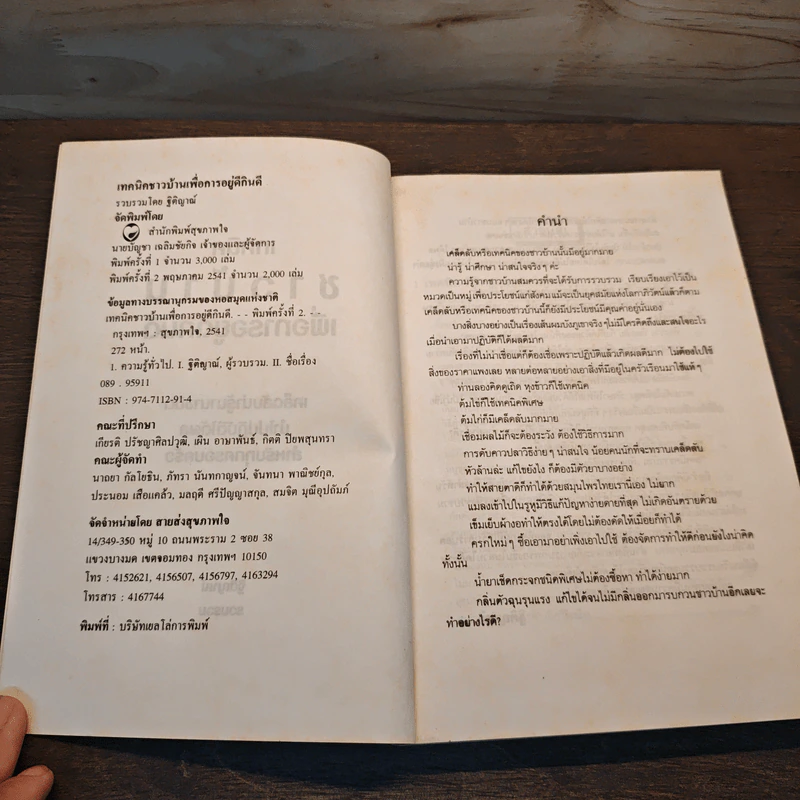 เทคนิคชาวบ้านเพื่อการอยู่ดีกินดี
รวบรวมโดย ฐิติญาณ์
จัดพิมพ์โดย
สำนักพิมพ์สุขภาพใจ
นายบัญชา เฉลิมชัยกิจ เจ้าของและผู้จัดการ
พิมพ์ครั้งที่ 1 จำนวน 3,000 เล่ม
พิมพ์ครั้งที่ 2 พฤษภาคม 2541 จำนวน 2,000 เล่ม
ข้อมูลทางบรรณานุกรมของหอสมุดแห่งชาติ
เทคนิคชาวบ้านเพื่อการอยู่ดีกินดี. - - พิมพ์ครั้งที่ 2. - -
กรุงเทพฯ : สุขภาพใจ, 2541
272 หน้า.
1. ความรู้ทั่วไป. I. ฐิติญาณ์, ผู้รวบรวม. II. ชื่อเรื่อง
089 . 95911
ISBN : 974-7112-91-4
คณะที่ปรึกษา
เกียรติ ปรัชญาศิลปวุฒิ, เผิน อาษาพันธ์, กิตติ ปิยพสุนทรา
คณะผู้จัดทำ
นาถยา กัลโยธิน, ภัทรา นันทกาญจน์, จันทนา พาณิชย์กุล,
ประนอม เสือแคล้ว, มลฤดี ศรีปัญญาสกุล, สมจิต มุณีอุปถัมภ์
จัดจำหน่ายโดย สายส่งสุขภาพใจ
14/349-350 หมู่ 10 ถนนพระราม 2 ซอย 38
แขวงบางมด เขตจอมทอง กรุงเทพฯ 10150
โทร : 4152621, 4156507, 4156797, 4163294
โทรสาร : 4167744
พิมพ์ที่ : บริษัทเยลโล่การพิมพ์
คำนำ
เคล็ดลับหรือเทคนิคของชาวบ้านนั้นมีอยู่มากมาย
น่ารู้ น่าศึกษา น่าสนใจจริงๆ ค่ะ
ความรู้จากชาวบ้านสมควรที่จะได้รับการรวบรวม เรียบเรียงเอาไว้เป็น
หมวดเป็นหมู่ เพื่อประโยชน์แก่สังคมแม้จะเป็นยุคสมัยแห่งโลกาภิวัตน์แล้วก็ตาม
เคล็ดลับหรือเทคนิคของชาวบ้านนี้ก็ยังมีประโยชน์มีคุณค่าอยู่นั่นเอง
บางสิ่งบางอย่างเป็นเรื่องเส้นผมบังภูเขาจริงๆ ไม่มีใครคิดถึงและสนใจอะไร
เมื่อนำเอามาปฏิบัติก็ได้ผลดีมาก
เรื่องที่ไม่น่าเชื่อแต่ก็ต้องเชื่อเพราะปฏิบัติแล้วเกิดผลดีมาก ไม่ต้องไปใช้
สิ่งของราคาแพงเลย หลายต่อหลายอย่างเอาสิ่งที่มีอยู่ในครัวเรือนมาใช้แท้ๆ
ท่านลองคิดดูเถิด หุงข้าวก็ใช้เทคนิค
ต้มไข่ก็ใช้เทคนิคพิเศษ
ต้มไก่ก็มีเคล็ดลับมากมาย
เชื่อมผลไม้ก็จะต้องระวัง ต้องใช้วิธีการมาก
การดับคาวปลาวิธีง่ายๆ น่าสนใจ น้อยคนนักที่จะทราบเคล็ดลับ
หัวล้านล่ะ แก้ไขยังไง ก็ต้องมีตัวยาบางอย่าง
ทำให้สายตาดีก็ทำได้ด้วยสมุนไพรไทยเรานี่เอง ไม่ยาก
แมลงเข้าไปในรูหูมีวิธีแก้ปัญหาง่ายดายที่สุด ไม่เกิดอันตรายด้วย
เข็มเย็บผ้างอทำให้ตรงได้โดยไม่ต้องดัดให้เมื่อยก็ทำได้
ครกใหม่ๆ ซื้อเอามาอย่าเพิ่งเอาไปใช้ ต้องจัดการทำให้ดีก่อนยังไงน่าคิด
ทั้งนั้น
น้ำยาเช็ดกระจกชนิดพิเศษไม่ต้องซื้อหา ทำได้ง่ายมาก
กลิ่นตัวฉุนรุนแรง แก้ไขได้จนไม่มีกลิ่นออกมารบกวนชาวบ้านอีกเลยจะ
ทำอย่างไรดี?